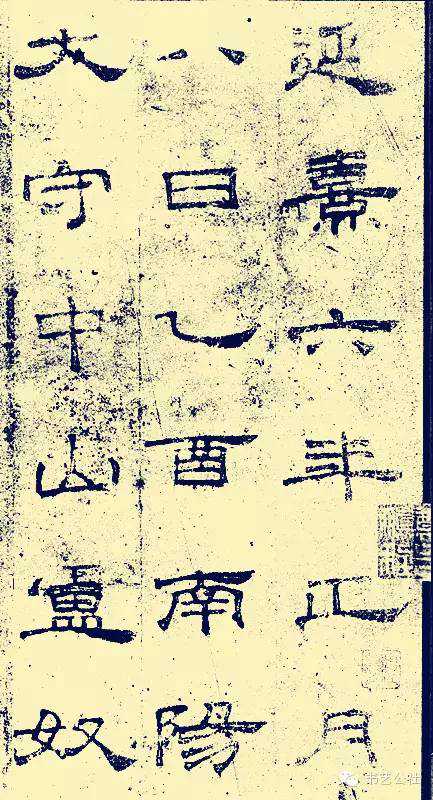 延熹六年正月
八日乙酉南陽
大守中山盧奴
书艺公社